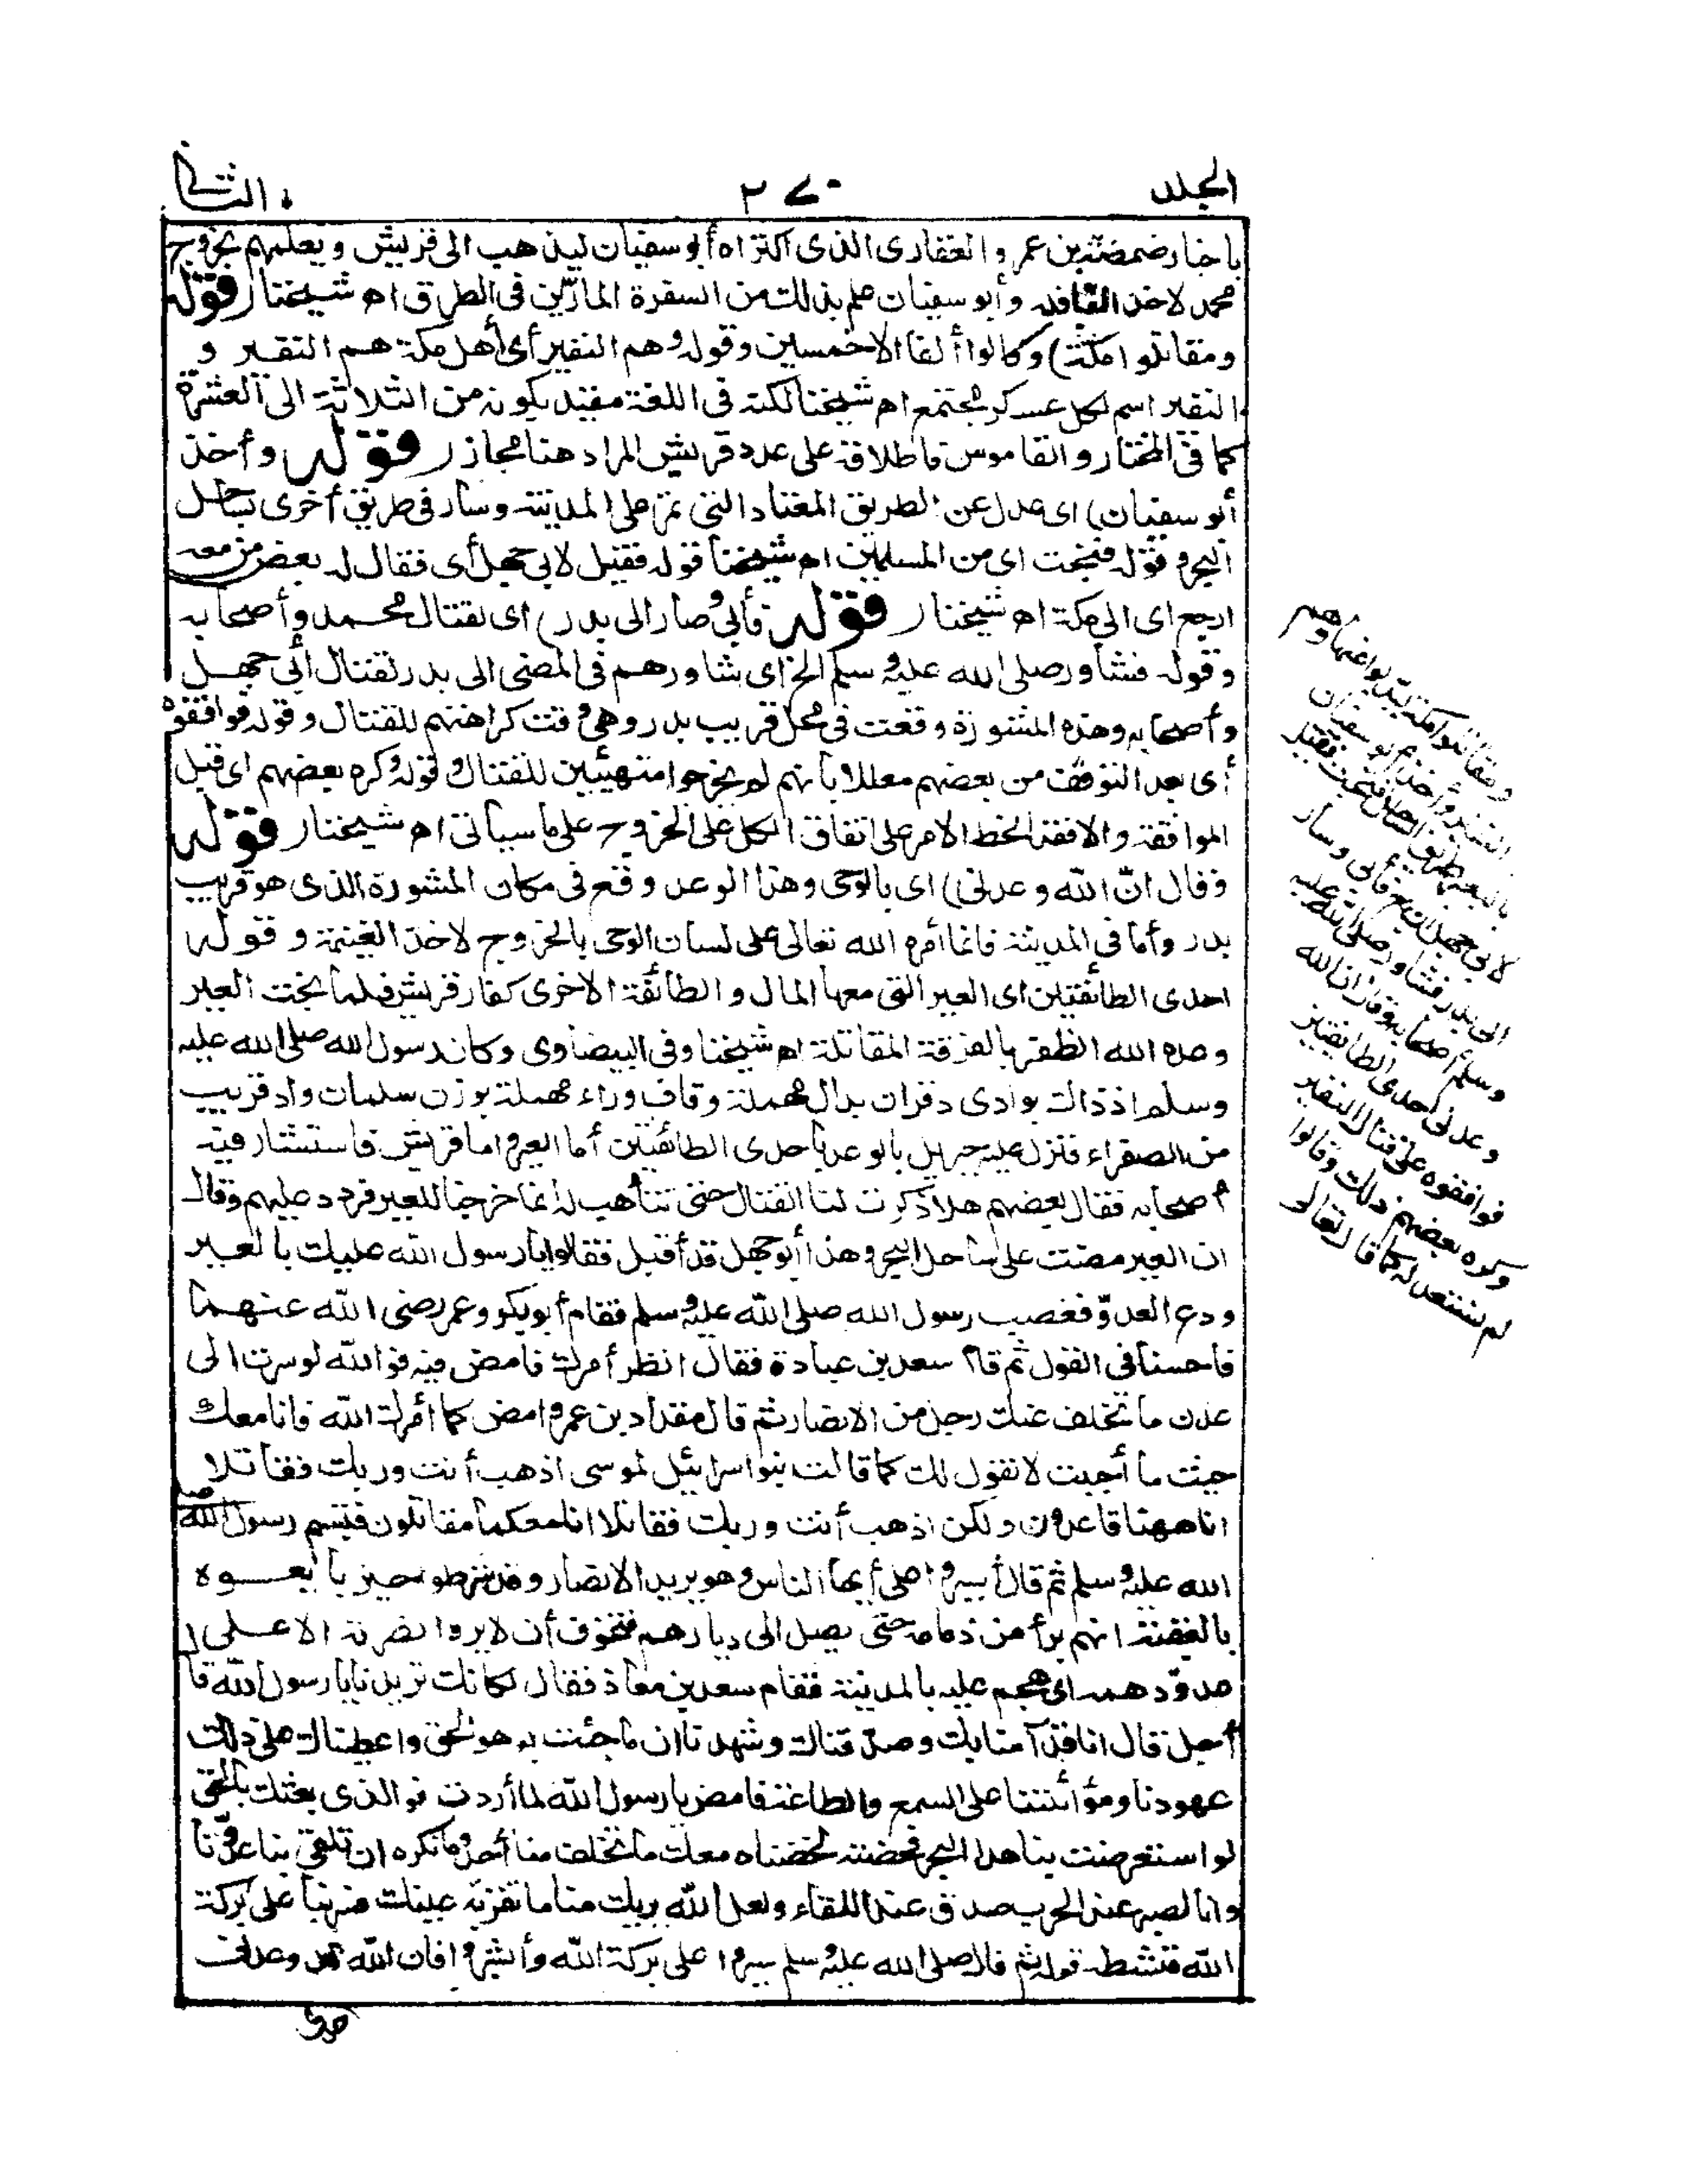 المجلد ٢٧٠ الثاني
باخبار ضمضة بن عمرو الغفاري الذي اكتراه أبو سفيان ليذهب الى قريش ويعلمهم بخروج
محمد لاخذ القافلة وأبو سفيان علم بذلك من السفرة المارّين في الطريق اه شيخنا ر قوله
ومقاتلوا مكة) وكانوا ألفا الاخمسين وقوله وهم النفير أى أهل مكة هم النفير و
النفير اسم لكل عسكر مجتمع اه شيخنا لكنه في اللغة مقيد بكونه من الثلاثة الى العشرة
كما في المختار والقاموس فاطلاقه على عدد قريش المراد هنا مجاز ر قوله وأخذ
أبو سفيان) اى عدل عن الطريق المعتاد التى تمرّ على المدينة وسار في طريق أخرى بساحل
البحر و قوله فنجت اى من المسلمين اه شيخنا قوله فقيل لابي جهل أى فقال له بعض من معه
ارجع اى الى مكة اه شيخنا ر قوله فأبى وصار الى بدر) اى لقتال محمد وأصحابه
وقوله فشاور صلى الله عليه وسلم الخ اى شاورهم في المضى الى بدر لقتال أبى جهل
وأصحابه وهذه المشورة وقعت في محل قريب بدر وهي وقت كراهتهم للقتال وقوله فوافقوه
أى بعد التوقف من بعضهم معللا بأنهم لم يخرجوا متهيئين للقتال وقوله وكره بعضهم اى قبل
الموافقة والا فقد انحط الامر على اتفاق الكل على الخروج على ما سيأتى اه شيخنا ر قوله
فقال انّ الله وعدنى) اى بالوحى وهذا الوعد وقع في مكان المشورة الذى هو قريب
بدر وأما في المدينة فانما أمره الله تعالى على لسان الوحى بالخروج لاخذ الغنيمة و قوله
احدى الطائفتين اى العير التى معها المال والطائفة الاخرى كفار قريش فلما نجت العير
وعده الله الظفر بالفرقة المقاتلة اه شيخنا وفى البيضاوى وكان رسول الله صلى الله عليه
وسلم اذ ذاك بوادى دقران بدال مهملة وقاف وراء مهملة بوزن سلمات واد قريب
من الصفراء فنزل عليه جبريل بالوعد باحدى الطائفتين أما العير واما قريش فاستشار فيه
أصحابه فقال بعضهم هلا ذكرت لنا القتال حتى نتأهب له انما خرجنا للعير فردد عليهم وقال
ان العير مضت على ساحل البحر وهذا أبو جهل قد أقبل فقالوا يا رسول الله عليك بالعير
ودع العدوّ فغضب رسول الله صلى الله عليه وسلم فقام أبو بكر وعمر رضى الله عنهما
فاحسنا في القول ثم قام سعد بن عبادة فقال انظر أمرك فامض فيه فوالله لو سرت الى
عدن ما تخلف عنك رجل من الانصار ثم قال مقداد بن عمرو امض كما أمرك الله فانا معك
حيث ما أحببت لا نقول لك كما قالت بنو اسرائيل لموسى اذهب أنت وربك فقاتلا
انا ههنا قاعدون ولكن اذهب أنت وربك فقاتلا انا معكما مقاتلون فتبسم رسول الله صلى
الله عليه وسلم ثم قال أشيروا على أيها الناس وهو يريد الانصار وقد شرطوا حين بايعوه
بالعقبة انهم برأء من ذمامه حتى يصل الى ديارهم فتخوف أن لا يروا نصرته الا على
عدوّ دهمه اى هجم عليه بالمدينة فقام سعد بن معاذ فقال لكانك تريدنا يا رسول الله قال
أجل قال انا قد آمنا بك وصدّقناك وشهدنا ان ما جئت به هو الحق واعطيناك على ذلك
عهودنا ومواثيقنا على السمع والطاعة فامض يا رسول الله لما أردت فو الذى بعثك بالحق
لو استعرضت بنا هذا البحر فخضته لخضناه معك ما تخلف منا أحد وما نكره ان تلقى بنا عدوّنا
وانا لصبر عند الحرب صدق عند اللقاء ولعل الله يريك منا ما تقرّ به عينك فسر بنا على بركة
الله فنشطه قوله ثم قال صلى الله عليه وسلم سيروا على بركة الله وأبشروا فان الله قد وعدنى
ومقاتلوا مكة ليذبوا عنها وهم
النفير وأخذ أبو سفيان
بالعير طريق الساحل فنجت فقيل
لابى جهل ارجع فأبى وسار
الى بدر فشاور صلى الله عليه
وسلم أصحابه وقال ان الله
وعدنى احدى الطائفتين
فوافقوه على قتال النفير
وكره بعضهم ذلك وقالوا
لم نستعد له كما قال تعالى